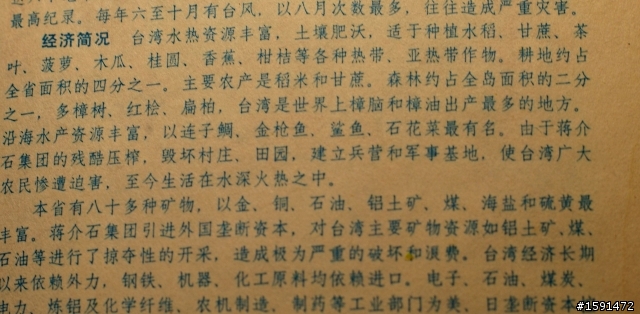 最高纪录。每年六至十月有台风，以八月次数最多，往往造成严重灾害。
经济简况　台湾水热资源丰富，土壤肥沃，适于种植水稻、甘蔗、茶
叶、菠萝、木瓜、桂圆、香蕉、柑桔等各种热带、亚热带作物。耕地约占
全省面积的四分之一。主要农产是稻米和甘蔗。森林约占全岛面积的二分
之一，多樟树、红桧、扁柏，台湾是世界上樟脑和樟油出产最多的地方。
沿海水产资源丰富，以连子鲷、金枪鱼、鲨鱼、石花菜最有名。由于蒋介
石集团的残酷压榨，毁坏村庄、田园，建立兵营和军事基地，使台湾广大
农民惨遭迫害，至今生活在水深火热之中。
本省有八十多种矿物，以金、铜、石油、铝土矿、煤、海盐和硫黄最
丰富。蒋介石集团引进外国垄断资本，对台湾主要矿物资源如铝土矿、煤、
石油等进行了掠夺性的开采，造成极为严重的破坏和浪费。台湾经济长期
以来依赖外力，钢铁、机器、化工原料均依赖进口。电子、石油、煤炭、
电力、炼铝及化学纤维、农机制造、制药等工业部门为美、日垄断资本
#1591472